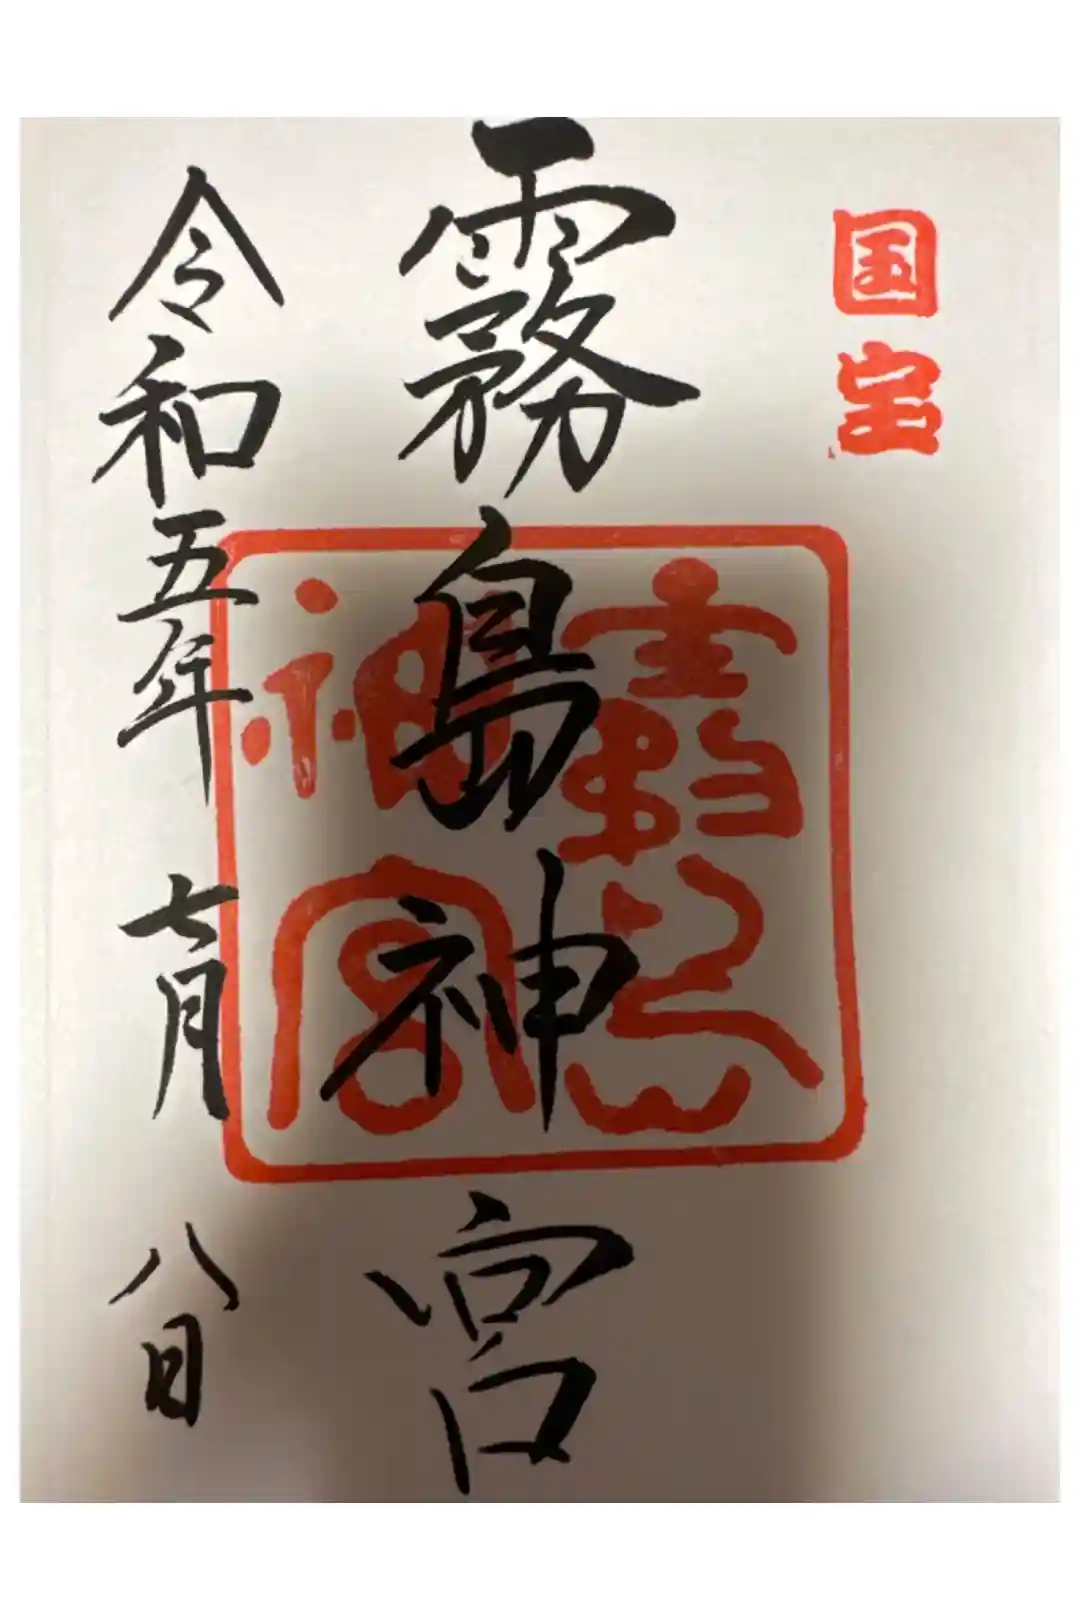 国宝
霧島神宮
霧島神宮
令和五年七月八日